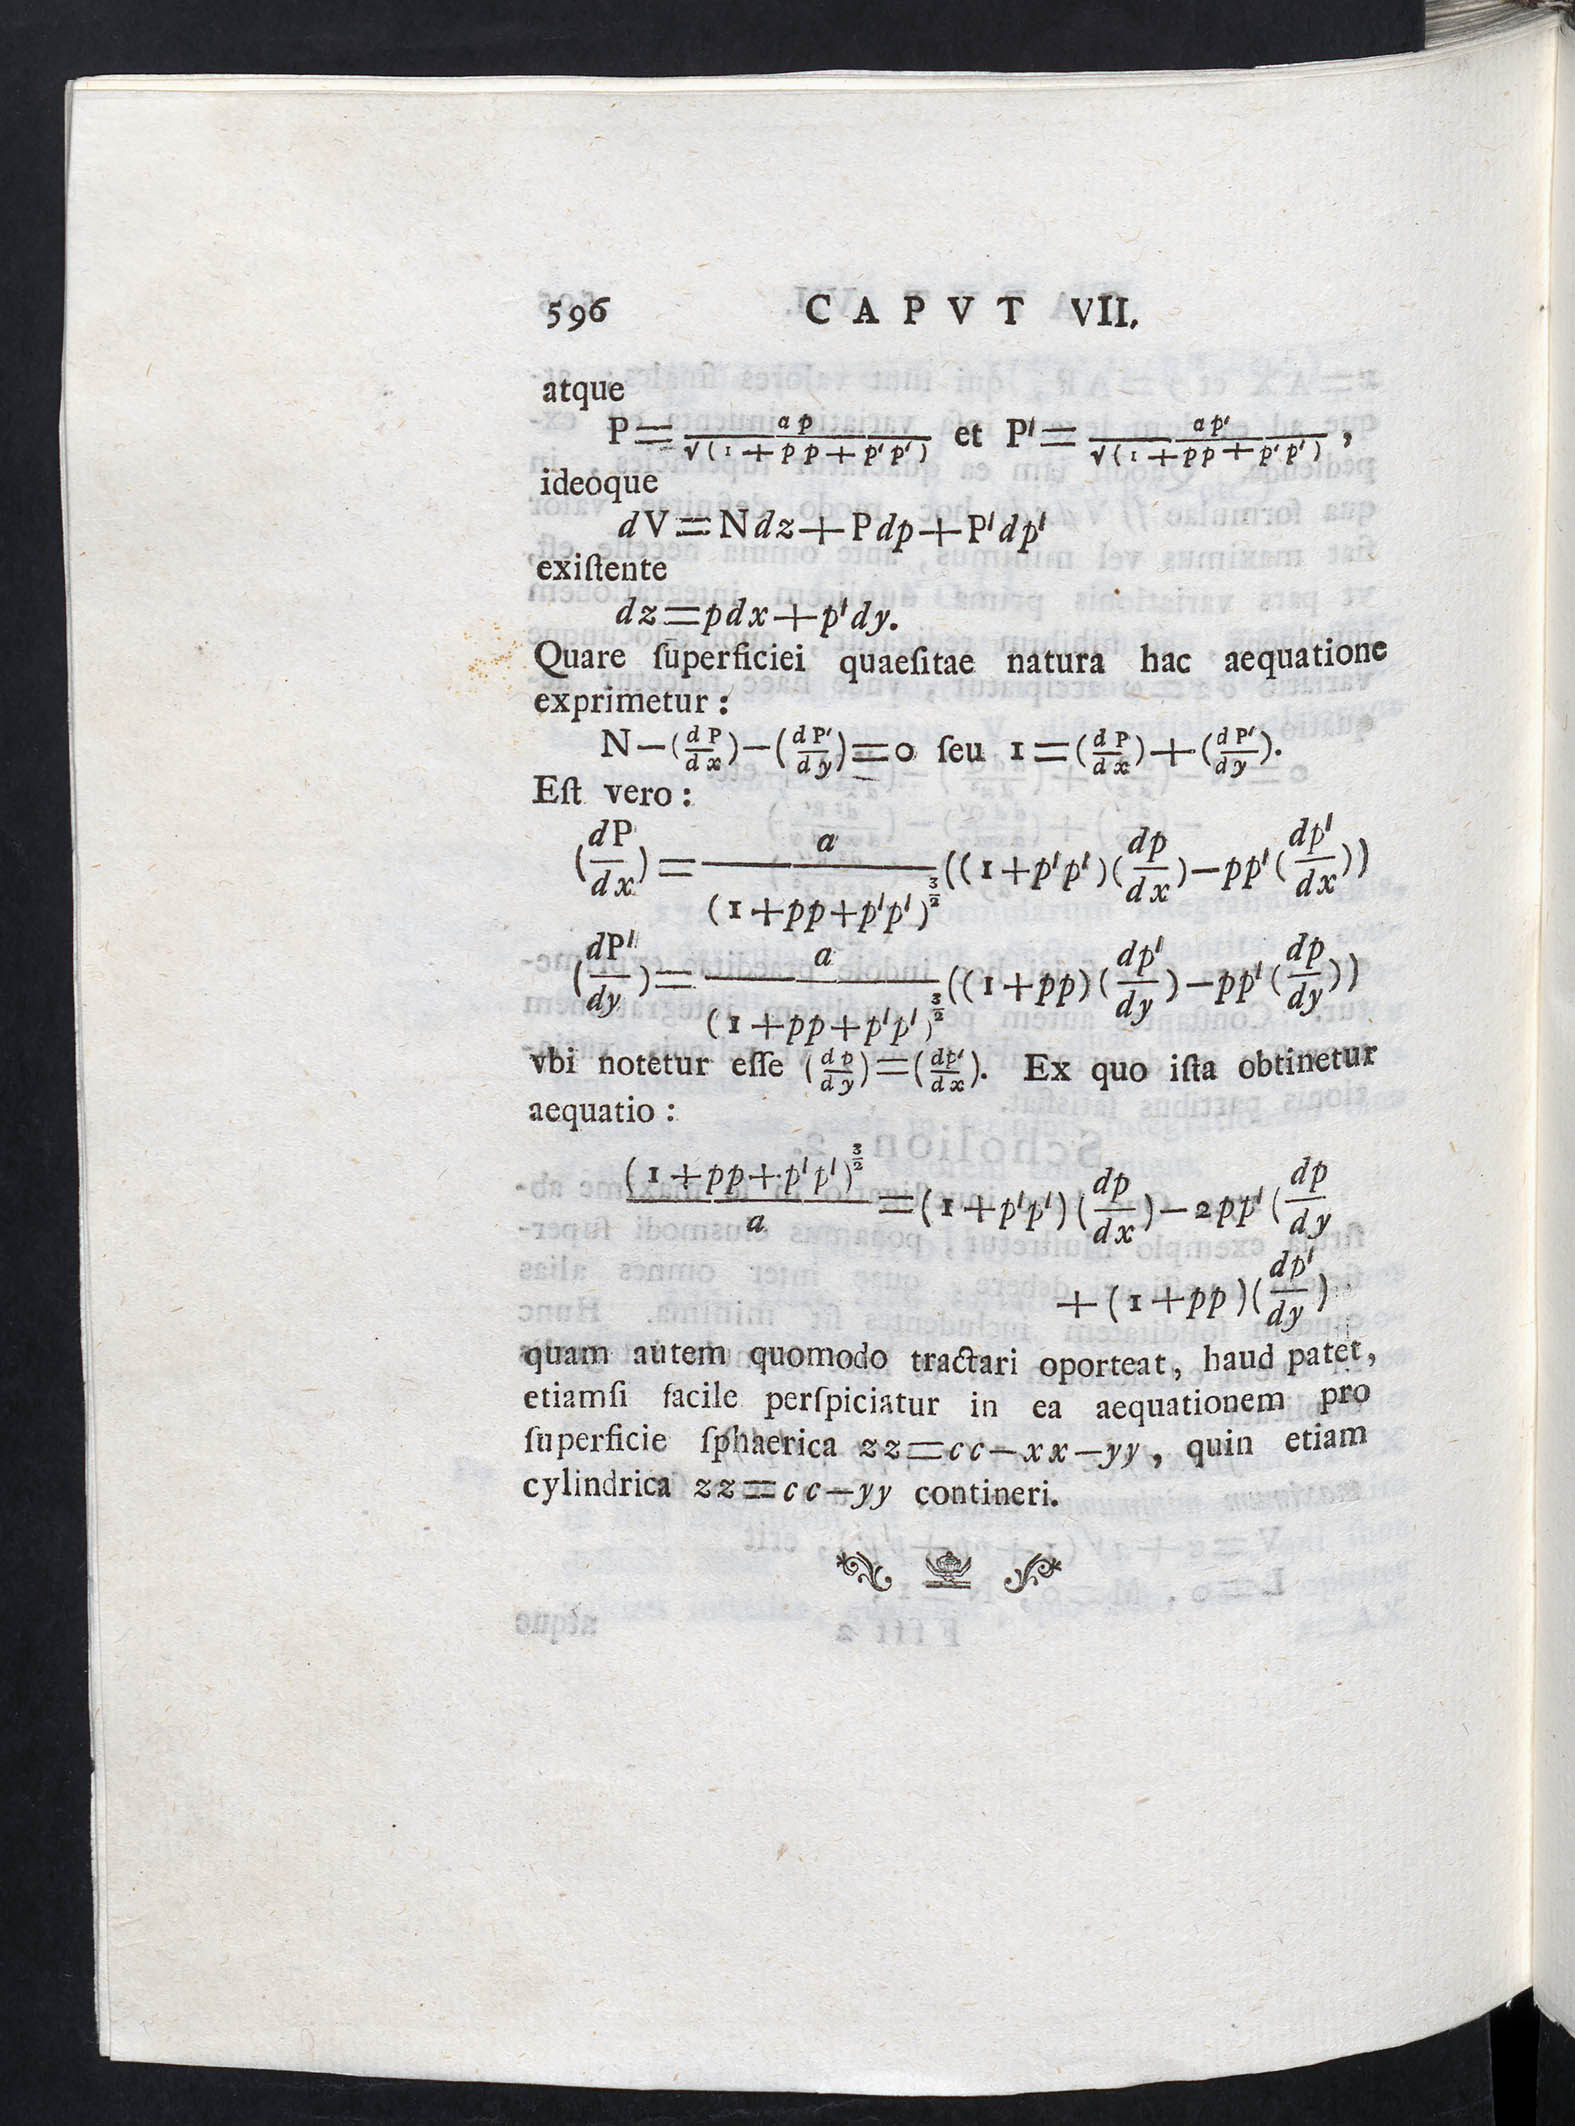 596 CAPVT VII.
atque
P = ap/√(1+pp+p'p') et P' = ap'/√(1+pp+p'p'),
ideoque
dV = Ndz + Pdp + P'dp'
exiſtente
dz = pdx + p'dy.
Quare ſuperficiei quaeſitae natura hac aequatione
exprimetur:
N − (dP/dx) − (dP'/dy) = 0 ſeu 1 = (dP/dx) + (dP'/dy).
Eſt vero:
(dP/dx) = a/(1+pp+p'p')^(3/2) ((1+p'p')(dp/dx) − pp'(dp'/dx))
(dP'/dy) = a/(1+pp+p'p')^(3/2) ((1+pp)(dp'/dy) − pp'(dp/dy))
vbi notetur eſſe (dp/dy) = (dp'/dx). Ex quo iſta obtinetur
aequatio:
(1+pp+p'p')^(3/2)/a = (1+p'p')(dp/dx) − 2pp'(dp/dy
+ (1+pp)(dp'/dy)
quam autem quomodo tractari oporteat, haud patet,
etiamſi facile perſpiciatur in ea aequationem pro
ſuperficie ſphaerica zz = cc − xx − yy, quin etiam
cylindrica zz = cc − yy contineri.